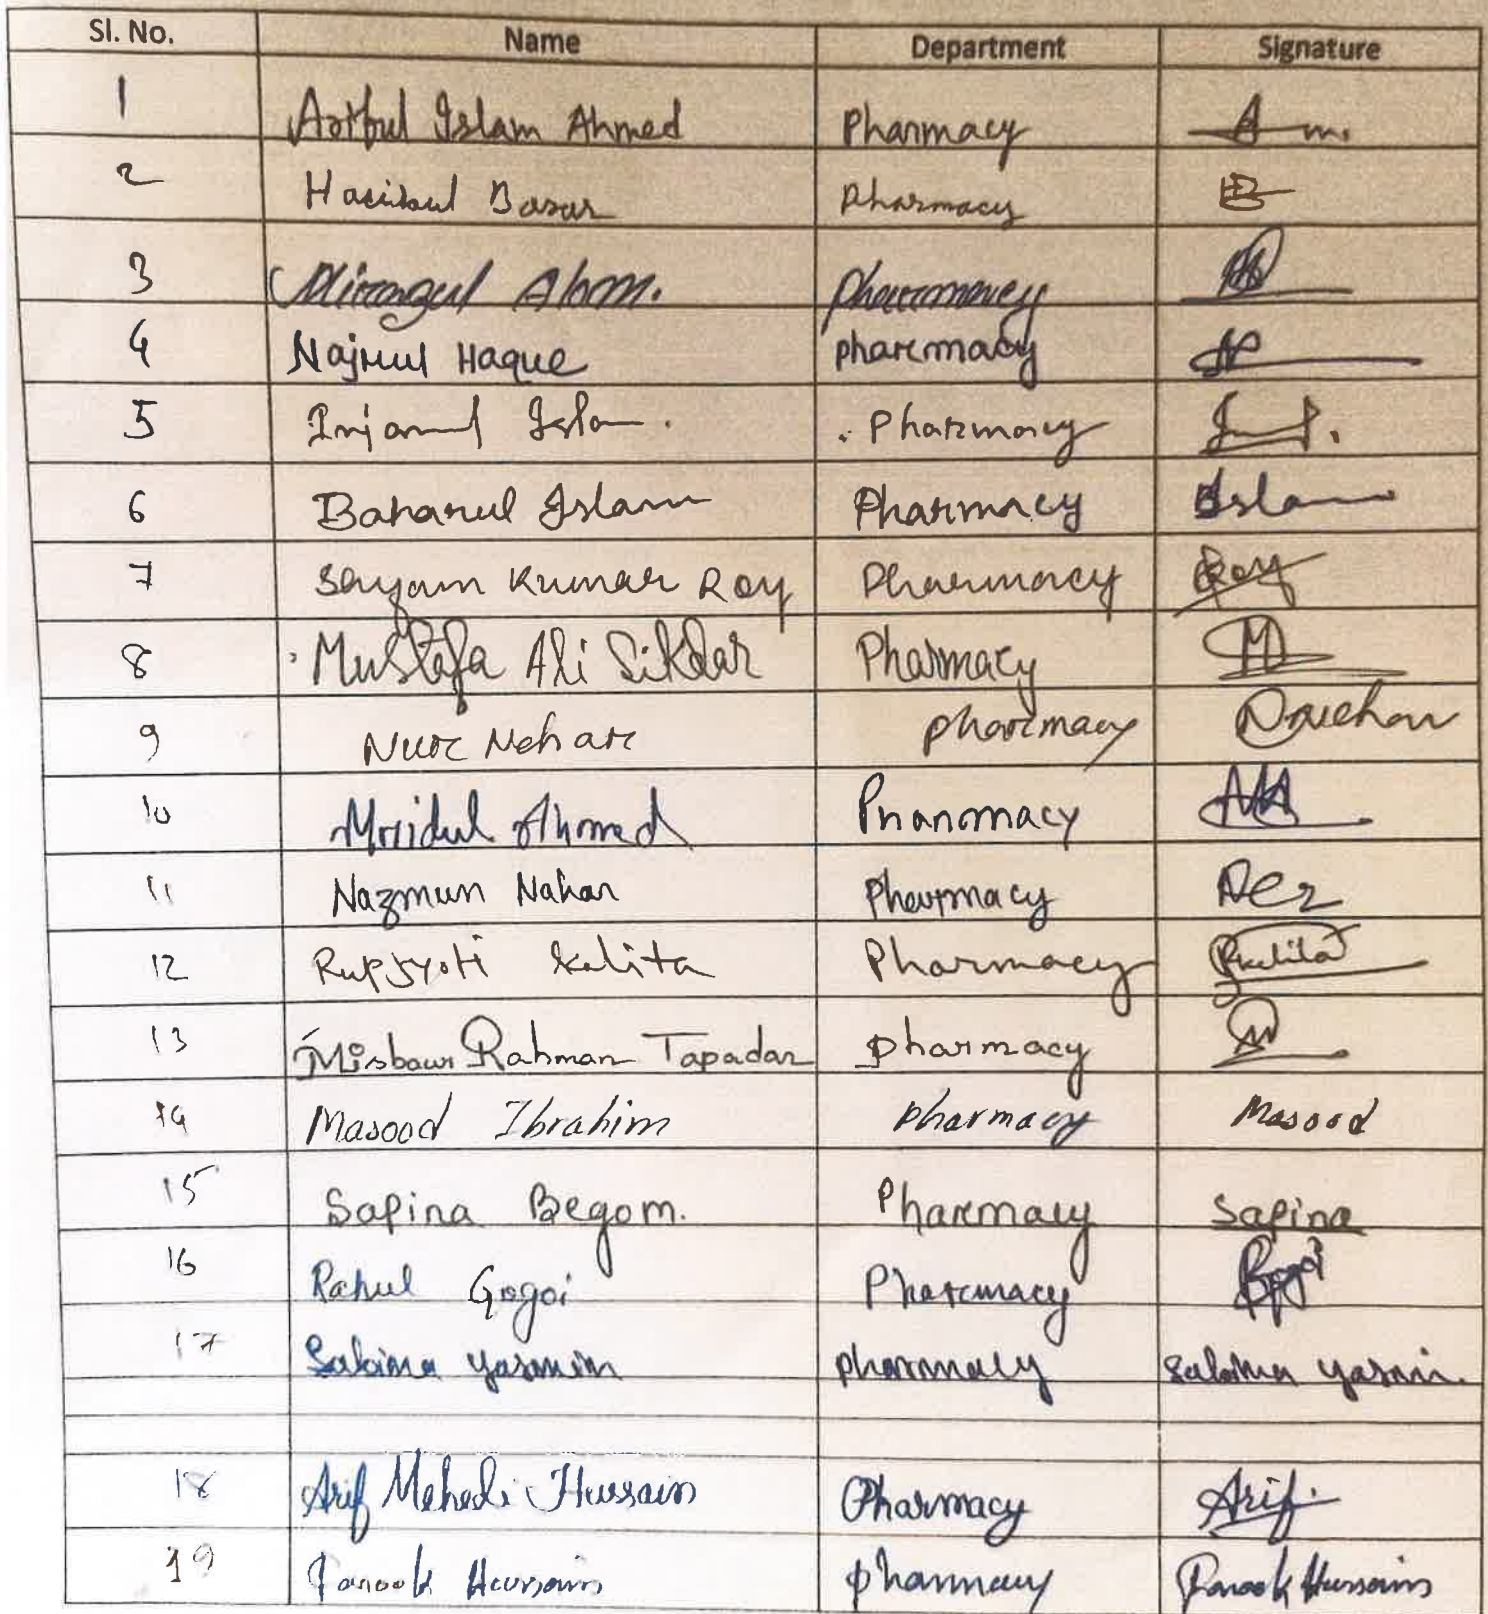 Sl. No. Name Department Signature
1 Ariful Islam Ahmed Pharmacy
2 Hacibul Basar Pharmacy
3 Mirazul Ahm. Pharmacy
4 Najmul Haque pharmacy
5 Injamul Islam. Pharmacy
6 Baharul Islam Pharmacy Islam
7 Sayam Kumar Roy Pharmacy Roy
8 Mustafa Ali Sikdar Pharmacy
9 Nur Nehar pharmacy
10 Mridul Ahmed Pharmacy
11 Nazmun Nahar Pharmacy
12 Rupjyoti Kalita Pharmacy Rkalita
13 Misbaur Rahman Tapadar Pharmacy
14 Masood Ibrahim pharmacy Masood
15 Safina Begom. Pharmacy Safina
16 Rahul Gogoi Pharmacy
17 Sabina Yasmin pharmacy Sabina Yasmin.
18 Arif Mehedi Hussain Pharmacy Arif.
19 Farook Hussain Pharmacy Farook Hussain